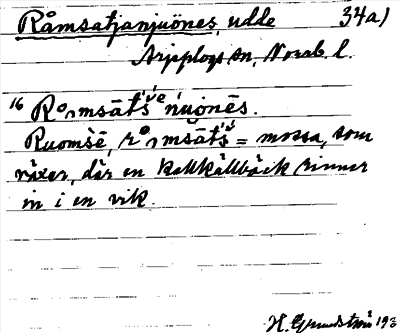 Råmsatjanjuönes, udde 34a)
Arjeplogs sn, Norrb. l.
16 Rₒmsātš́ᵛᵉ nuʹɡnēs.
Ruomšē, rₒmsātš́ = mossa, som
växer, där en kallkällbäck rinner
in i en vik.
H. Grundström 193